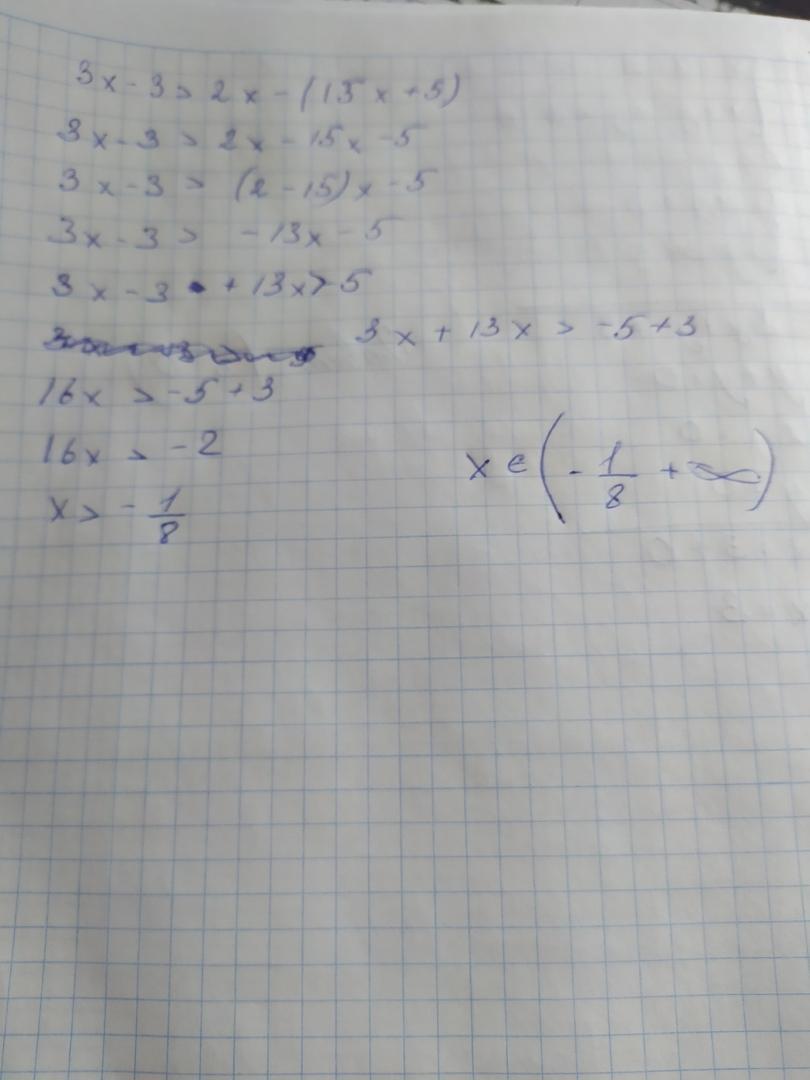 3x - 3 > 2x - (15x + 5)
3x - 3 > 2x - 15x - 5
3x - 3 > (2 - 15)x - 5
3x - 3 > - 13x - 5
3x - 3 + 13x > 5
3x + 13x > -5 + 3
16x > -5 + 3
16x > -2
x > - 1/8
x ∈ (- 1/8 + ∞)